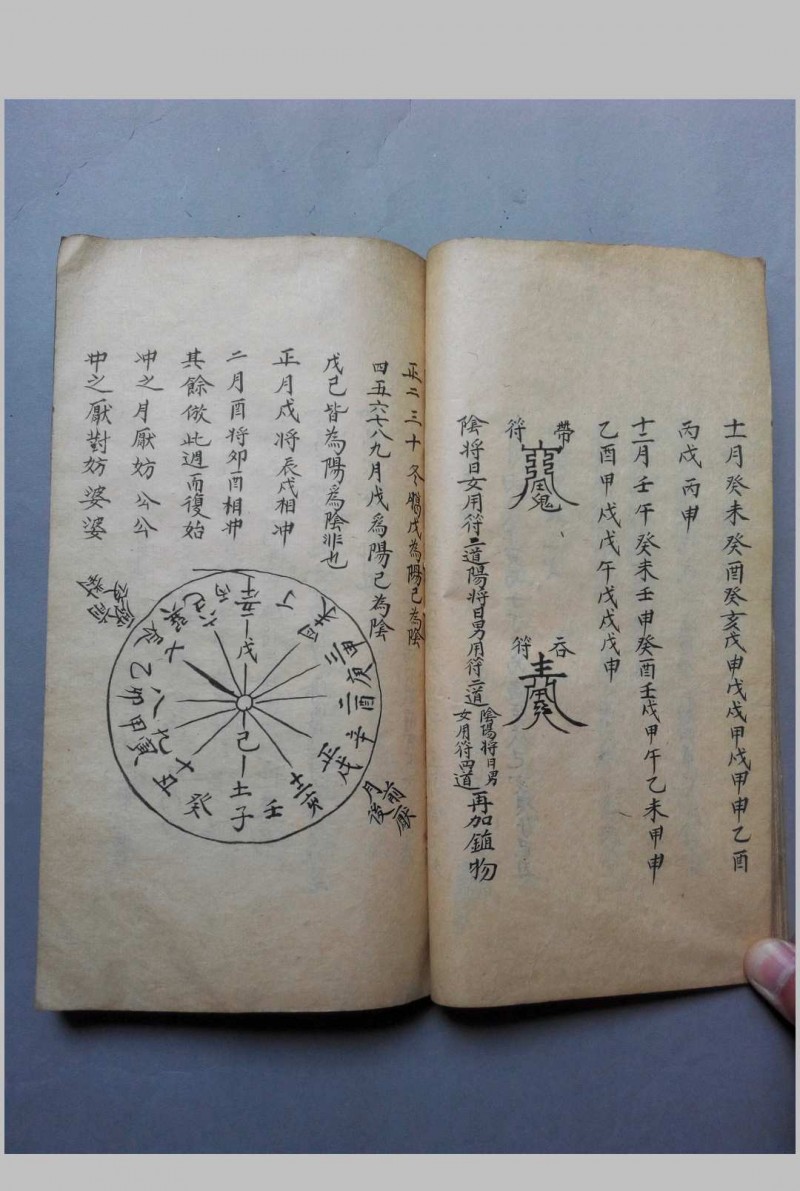 十一月癸未癸酉癸亥戊申戊戌甲戌甲申乙酉
丙戌丙申
十二月壬午癸未壬申癸酉壬戌甲午乙未甲申
乙酉甲戌戊午戊戌戊申
帶符
吞符
陰將日女用符二道陽將日男用符二道
陰陽將日男
女用符四道
再加鎮物
正二三十冬臘戊為陽己為陰
四五六七八九月戊為陽己為陰
戊己皆為陽為陰非也
正月戌將辰戌相冲
二月酉將卯酉相冲
其餘倣此週而復始
冲之月厭妨公公
冲之厭對妨婆婆
五午
丁
四未
三申
庚
二酉
辛
正戌
十二亥
壬
十一子
癸
十丑
九寅
甲
八卯
乙
七辰
巽
六巳
丙
戊
己
前厭
月後